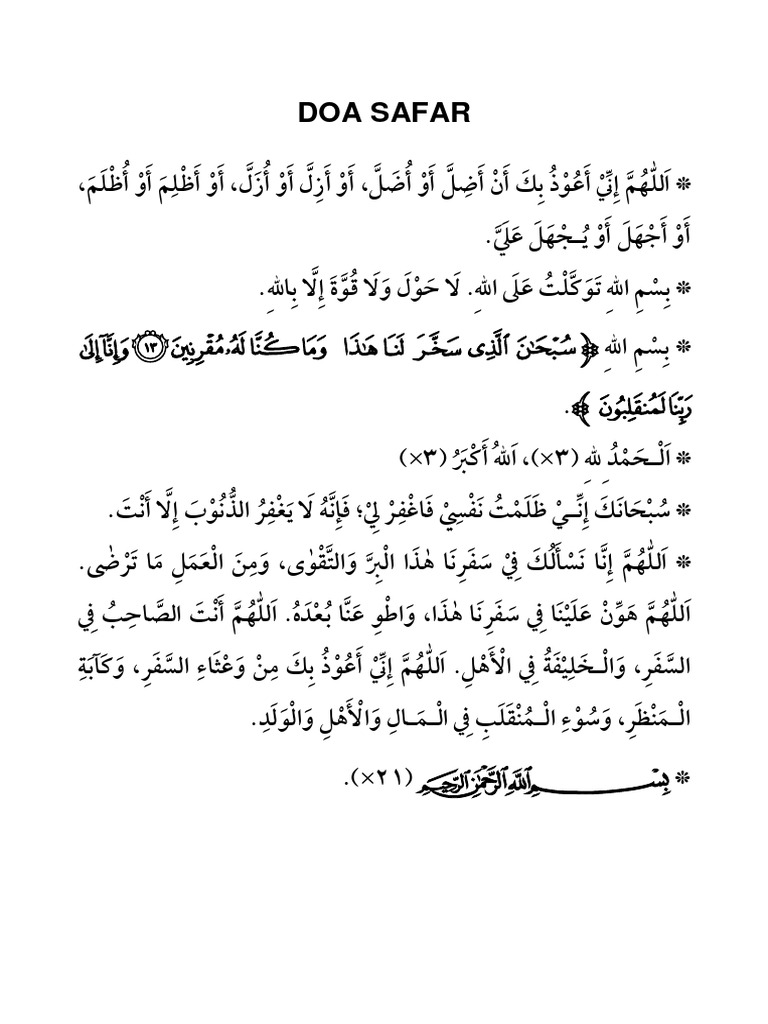 DOA SAFAR
❊ اَللّٰهُمَّ إِنِّيْ أَعُوْذُ بِكَ أَنْ أَضِلَّ أَوْ أُضَلَّ، أَوْ أَزِلَّ أَوْ أُزَلَّ، أَوْ أَظْلِمَ أَوْ أُظْلَمَ،
أَوْ أَجْهَلَ أَوْ يُـجْهَلَ عَلَيَّ.
❊ بِسْمِ اللهِ تَوَكَّلْتُ عَلَى اللهِ. لَا حَوْلَ وَلَا قُوَّةَ إِلَّا بِاللهِ.
❊ بِسْمِ اللهِ ﴿سُبْحَٰنَ ٱلَّذِى سَخَّرَ لَنَا هَٰذَا وَمَا كُنَّا لَهُۥ مُقْرِنِينَ ١٣ وَإِنَّآ إِلَىٰ
رَبِّنَا لَمُنقَلِبُونَ﴾.
❊ اَلْـحَمْدُ لِلهِ (٣×)، اَللهُ أَكْبَرُ (٣×)
❊ سُبْحَانَكَ إِنِّـيْ ظَلَمْتُ نَفْسِيْ فَاغْفِرْ لِيْ؛ فَإِنَّهُ لَا يَغْفِرُ الذُّنُوْبَ إِلَّا أَنْتَ.
❊ اَللّٰهُمَّ إِنَّا نَسْأَلُكَ فِيْ سَفَرِنَا هٰذَا الْبِرَّ وَالتَّقْوٰى، وَمِنَ الْعَمَلِ مَا تَرْضٰى.
اَللّٰهُمَّ هَوِّنْ عَلَيْنَا فِي سَفَرِنَا هٰذَا، وَاطْوِ عَنَّا بُعْدَهُ. اَللّٰهُمَّ أَنْتَ الصَّاحِبُ فِي
السَّفَرِ، وَالْـخَلِيْفَةُ فِي الْأَهْلِ. اَللّٰهُمَّ إِنِّيْ أَعُوْذُ بِكَ مِنْ وَعْثَاءِ السَّفَرِ، وَكَآبَةِ
الْـمَنْظَرِ، وَسُوْءِ الْـمُنْقَلَبِ فِي الْـمَـالِ وَالْأَهْلِ وَالْوَلَدِ.
❊ بِسْمِ ٱللَّهِ ٱلرَّحْمَٰنِ ٱلرَّحِيمِ (٢١×).